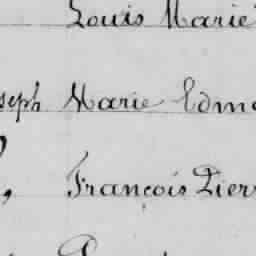 Louis Marie
seph Marie Edm
, François Pier